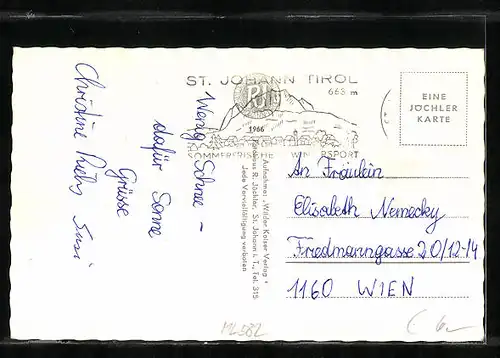 ST. JOHANN TIROL
663 m
1966
SOMMERFRISCHE WINTERSPORT
EINE
JÖCHLER
KARTE
Wenig Schnee -
dafür Sonne
Grüsse
Christine
Susi
Aufnahme: Wilder Kaiser Verlag
R. Jöchler, St. Johann i. T., Tel. 315
Jede Vervielfältigung verboten
An Fräulein
Elisabeth Nemecky
Friedmanngasse 20/12-14
1160 WIEN
ML582